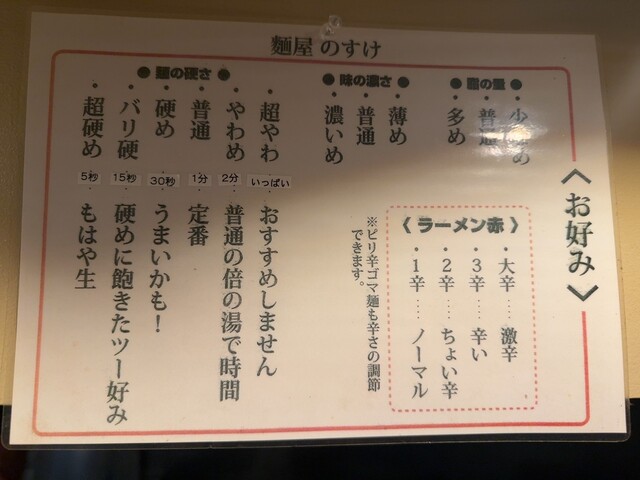 麵屋 のすけ
〈お好み〉
● 脂の量 ●
・少なめ
・普通
・多め
● 味の濃さ ●
・薄め
・普通
・濃いめ
● 麵の硬さ ●
・超やわ いっぱい おすすめしません
・やわめ 2分 普通の倍の湯で時間
・普通 1分 定番
・硬め 30秒 うまいかも!
・バリ硬 15秒 硬めに飽きたツー好み
・超硬め 5秒 もはや生
〈 ラーメン赤 〉
・大辛‥‥激辛
・3辛‥‥辛い
・2辛‥‥ちょい辛
・1辛‥‥ノーマル
※ピリ辛ゴマ麵も辛さの調節
できます。